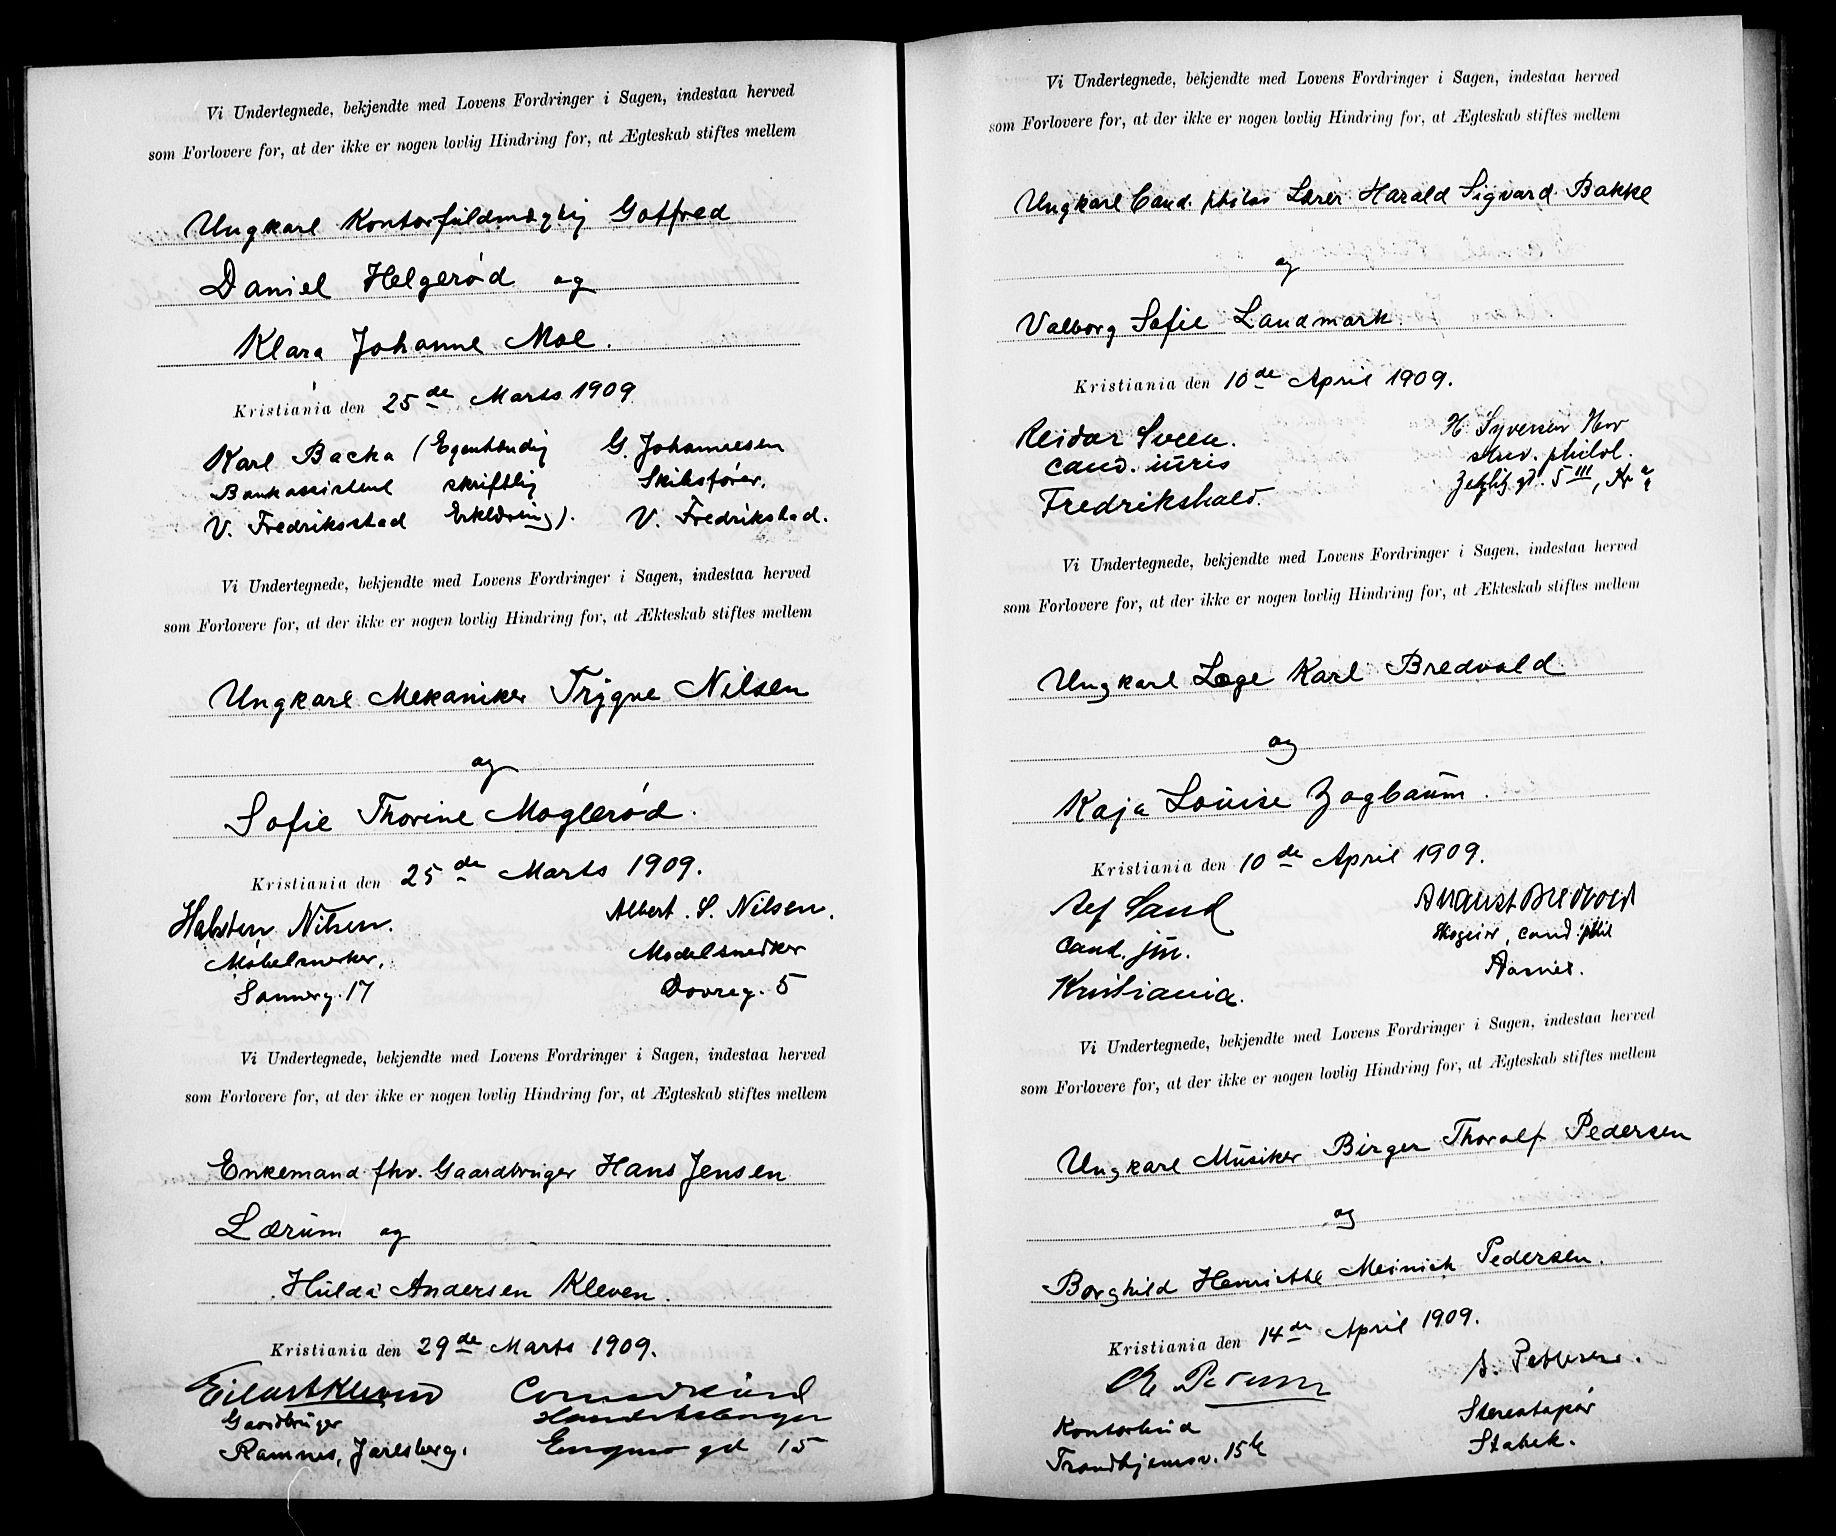 Vi Undertegnede, bekjendte med Lovens Fordringer i Sagen, indestaa herved
som Forlovere for, at der ikke er nogen lovlig Hindring for, at Ægteskab stiftes mellem
Ungkarl Kontorfuldmægtig Gotfred
Daniel Helgerød og
Klara Johanne Moe.
Kristiania den 25de Marts 1909
Karl Backa (Egenhændig
Bankassistent skriftlig
V. Fredriksstad Erklæring).
G. Johannesen
Skibsfører.
V. Fredrikstad.
Vi Undertegnede, bekjendte med Lovens Fordringer i Sagen, indestaa herved
som Forlovere for, at der ikke er nogen lovlig Hindring for, at Ækteskab stiftes mellem
Ungkarl Mekaniker Trygve Nilsen
og
Sofie Thorine Moglerød.
Kristiania den 25de Marts 1909.
Halsten Nilsen.
Møbelsnerker,
Sannerg. 17
Albert. S. Nilsen.
Modelsnedker
Dovreg. 5
Vi Undertegnede, bekjendte med Lovens Fordringer i Sagen, indestaa herved
som Forlovere for, at der ikke er nogen lovlig Hindring for, at Ægteskab stiftes mellem
Enkemand fhv. Gaardbruger Hans Jensen
Lærum og
Hulda Andersen Kleven.
Kristiania den 29de Marts 1909.
Eilert Kleven
Gardbruger
Ramnes, Jarlsberg.
gd 15
Vi Undertegnede, bekjendte med Lovens Fordringer i Sagen, indestaa herved
som Forlovere for, at der ikke er nogen lovlig Hindring for, at Ægteskab stiftes mellem
Ungkarl Cand. philos Lærer Harald Sigvard Bakke
og
Valborg Sofie Landmark.
Kristiania den 10de April 1909.
Reidar Sveen.
cand. juris
Fredrikshald.
H. Syversen
stud. philol.
5 III, Kr a
Vi Undertegnede, bekjendte med Lovens Fordringer i Sagen, indestaa herved
som Forlovere for, at der ikke er nogen lovlig Hindring for, at Ækteskab stiftes mellem
Ungkarl Læge Karl Bredvold
og
Kaja Louise Zogbaum.
Kristiania den 10de April 1909.
Sand
Cand. jur.
Kristiania.
August Bredvold
cand. phil
Vi Undertegnede, bekjendte med Lovens Fordringer i Sagen, indestaa herved
som Forlovere for, at der ikke er nogen lovlig Hindring for, at Ægteskab stiftes mellem
Ungkarl Musiker Birger Thoralf Pedersen
og
Borghild Henriette Meinich Pedersen.
Kristiania den 14de April 1909.
Kontorbud
Trondhjemsv. 15b
A. Pettersen.
Stereotypør
Stabek.